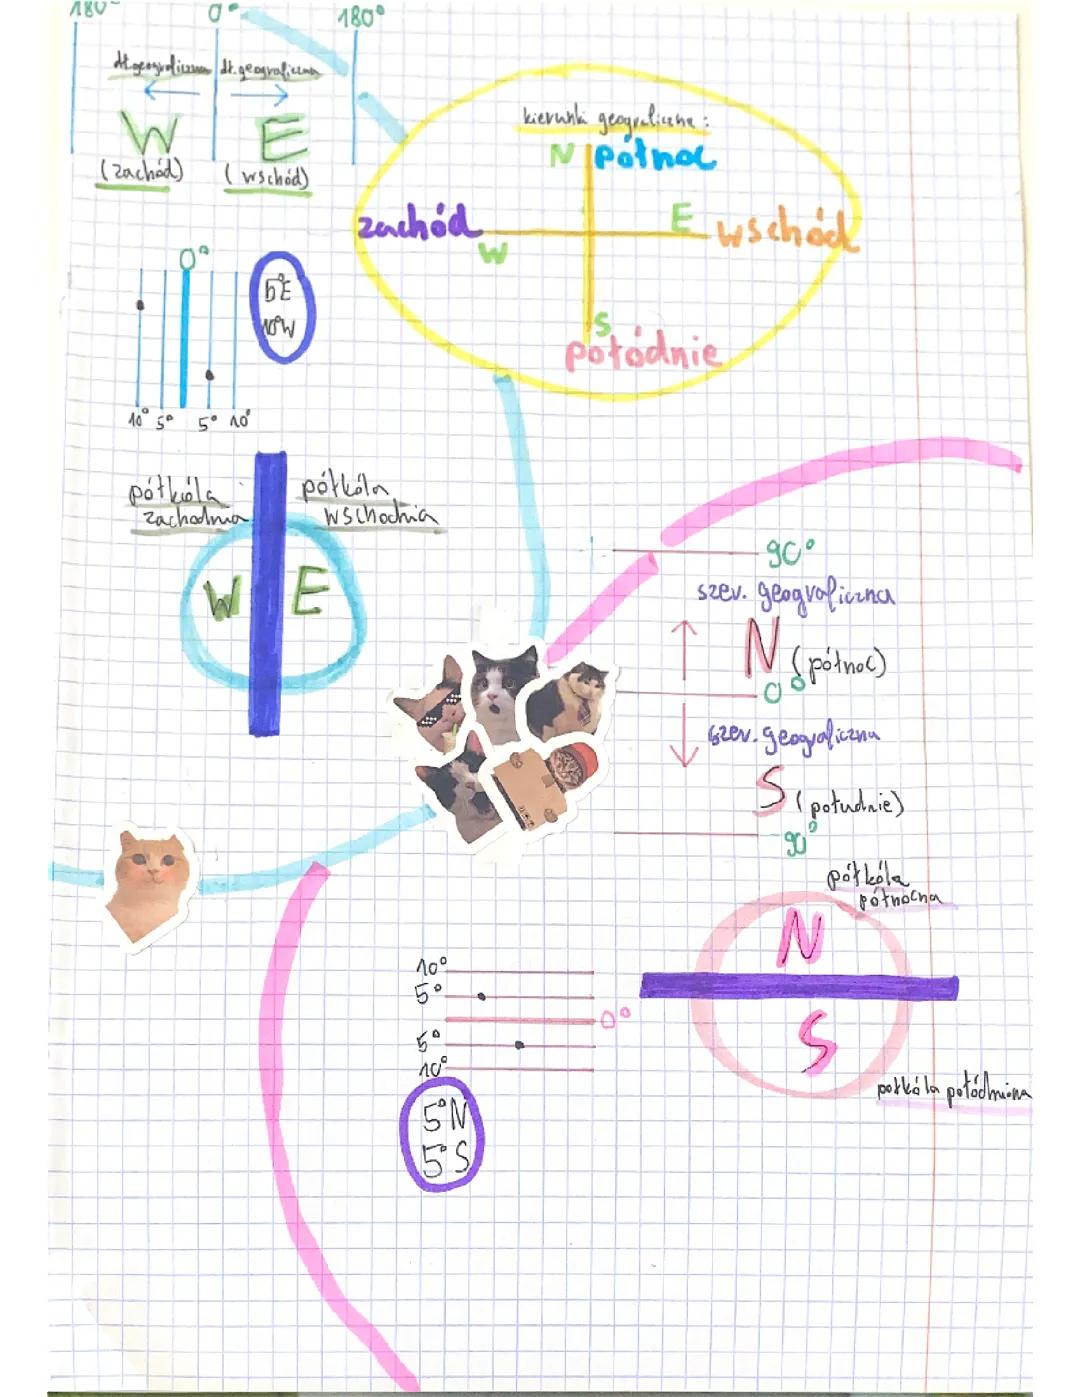 180°
0°
180°
dł. geograficzna
dł. geograficzna
W
E
(zachód)
(wschód)
kierunki geograficzne:
N północ
zachód
W
E wschód
S
połódnie
0°
5°E
10°W
10° 5° 5° 10°
półkóla
zachodnia
półkóla
wschodnia
W E
90°
szer. geograficzna
N (północ)
0°
szer. geograficzna
S (południe)
90°
półkóla
północna
N
S
półkóla połódniowa
10°
5°
0°
5°
10°
5°N
5°S